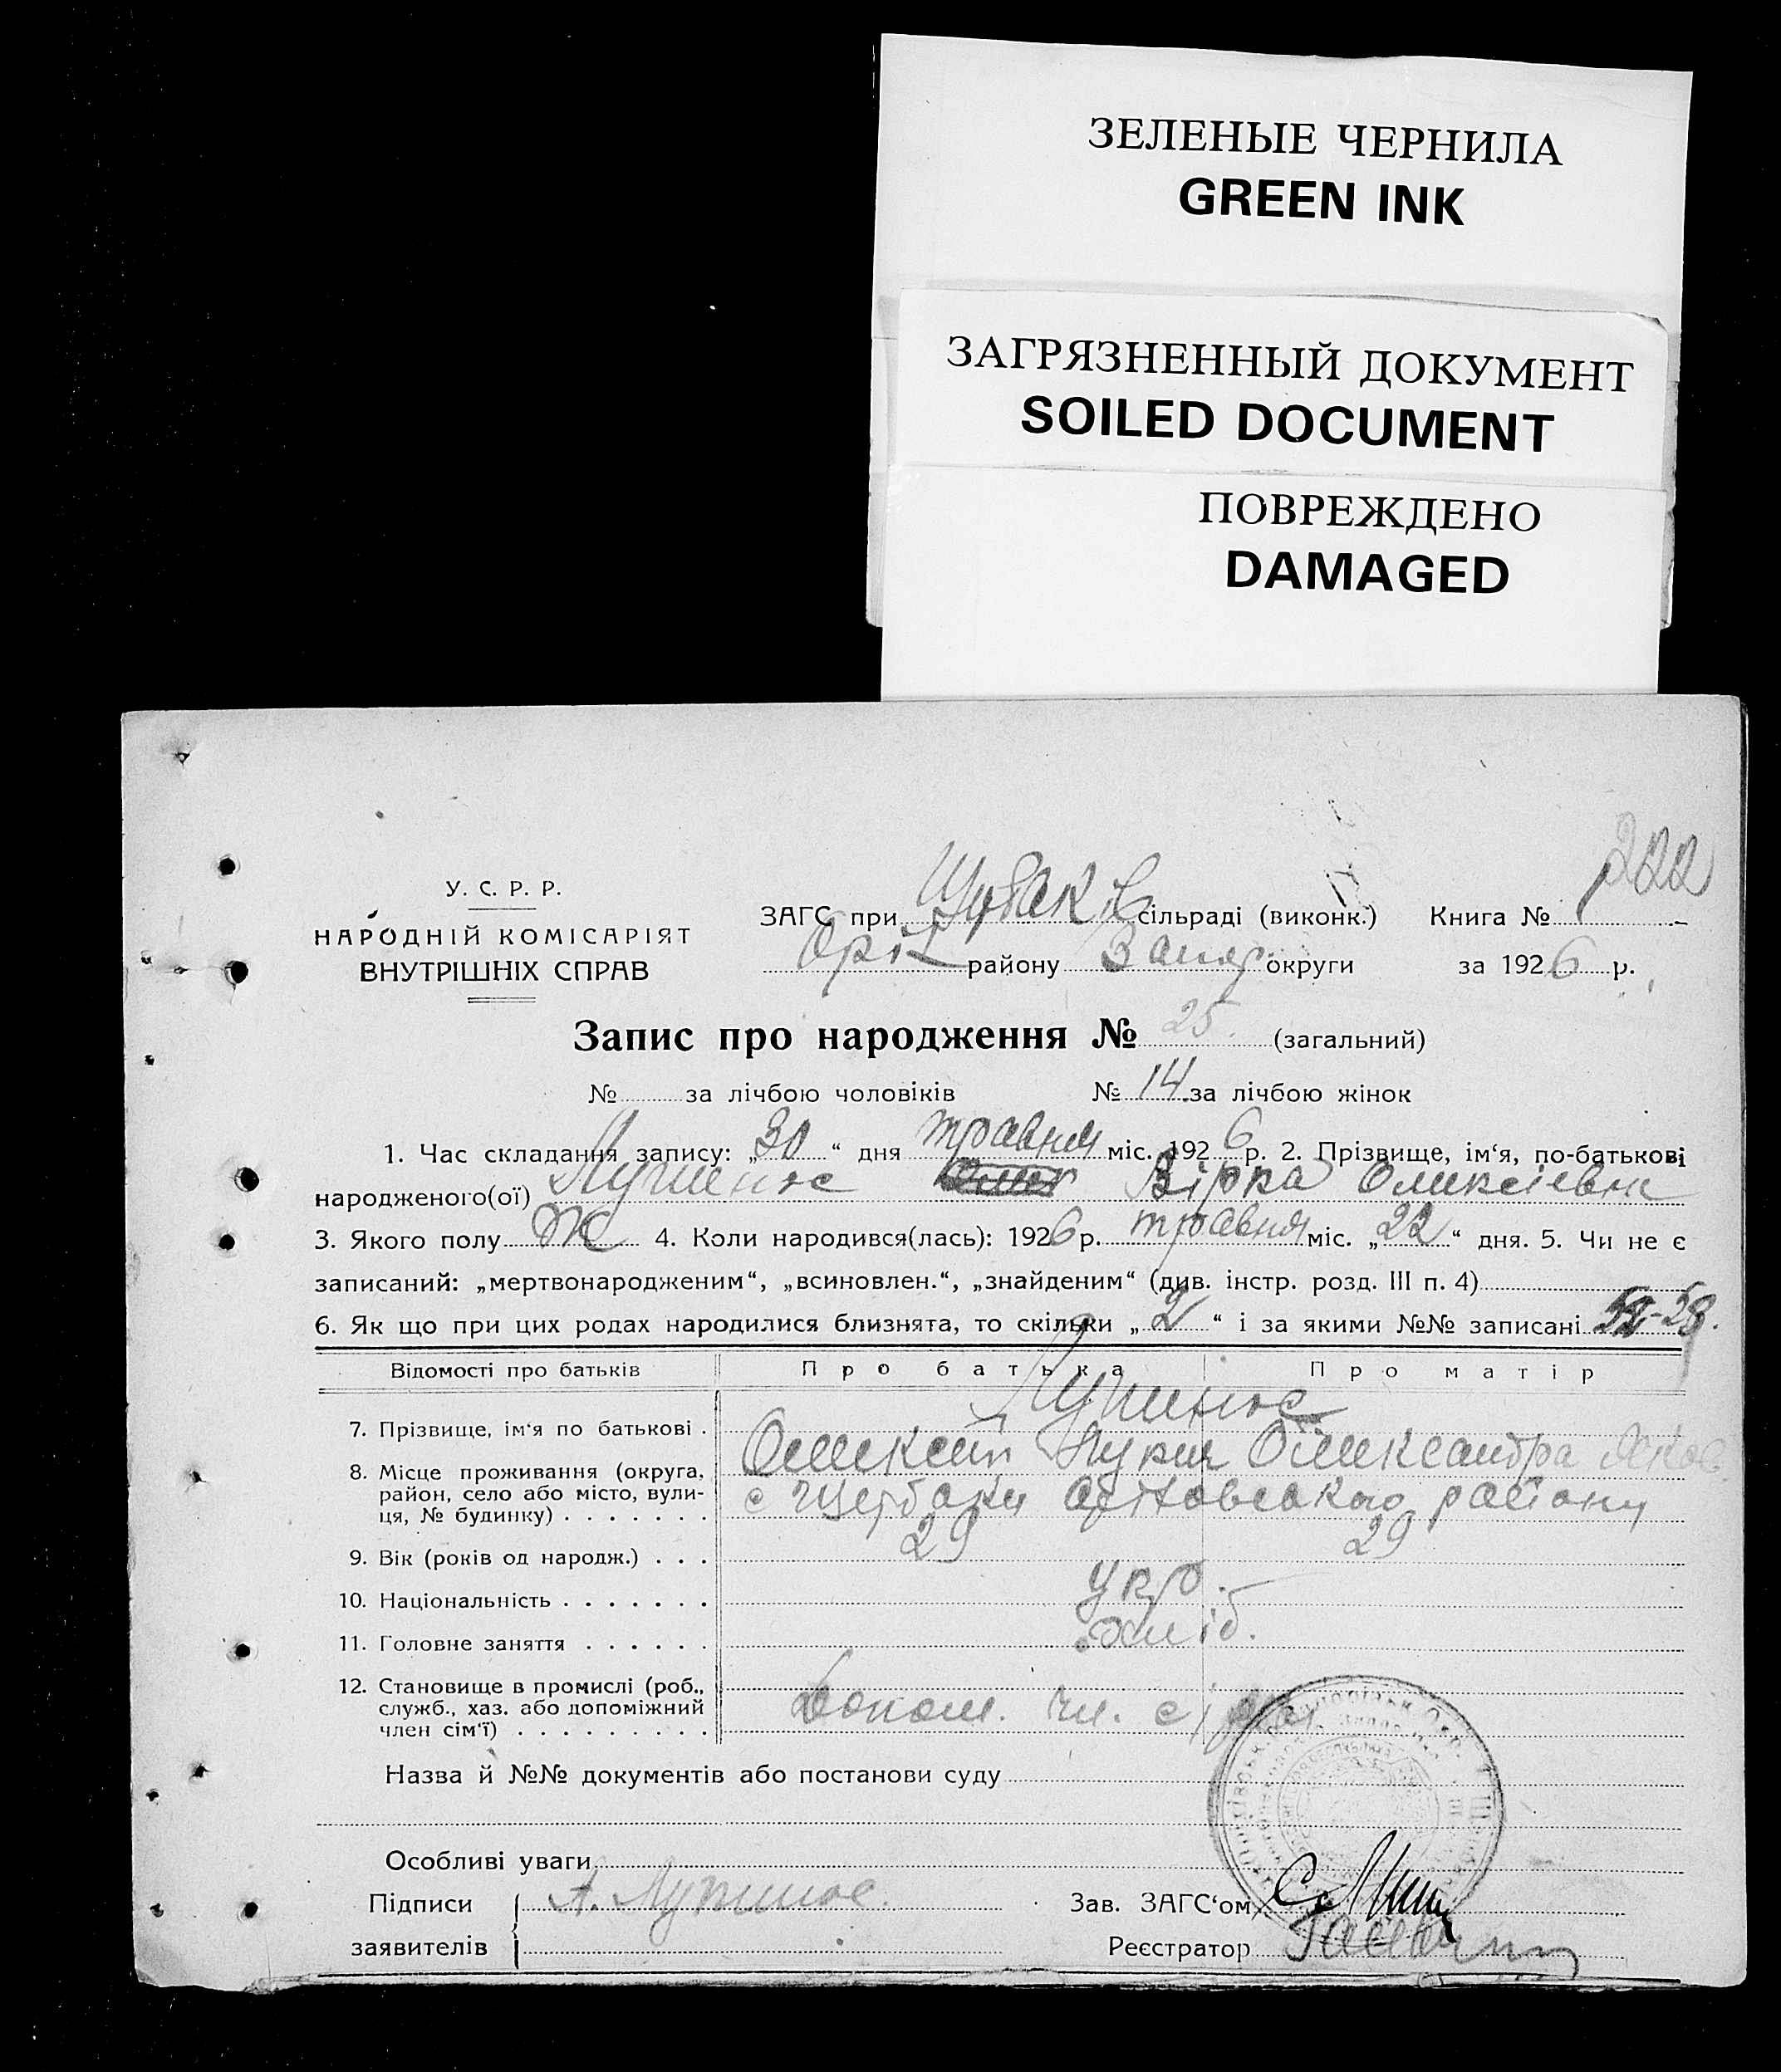 ЗЕЛЕНЫЕ ЧЕРНИЛА
GREEN INK
ЗАГРЯЗНЕННЫЙ ДОКУМЕНТ
SOILED DOCUMENT
ПОВРЕЖДЕНО
DAMAGED
222
У. С. Р. Р.
НАРОДНІЙ КОМІСАРІЯТ
ВНУТРІШНІХ СПРАВ
ЗАГС при сільраді (виконк.) Книга № 1
Оріх району Запор. округи за 1926 р.
Запис про народження № 25. (загальний)
№ за лічбою чоловіків № 14 за лічбою жінок
1. Час складання запису: „30“ дня травня міс. 1926 р. 2. Прізвище, ім‘я, по-батькові
народженого(ої) Вірка Олексієвна
3. Якого полу Ж 4. Коли народився(лась): 1926 р. травня міс. „22“ дня. 5. Чи не є
записаний: „мертвонародженим“, „всиновлен.“, „знайденим“ (див. інстр. розд. III п. 4)
6. Як що при цих родах народилися близнята, то скільки „2“ і за якими №№ записані
Відомості про батьків Про батька Про матір
7. Прізвище, ім‘я по батькові .
Олексій Александра Яков.
8. Місце проживання (округа, район, село або місто, вули-ця, № будинку) . . . . . . .
с Щербаки Оріховського району
9. Вік (років од народж.) . . . 29 29
10. Національність . . . . . . . укр.
11. Головне заняття . . . . . . хліб.
12. Становище в промислі (роб., служб., хаз. або допоміжний член сім‘ї) . . . . . . . . .
Допом. чл. сім
Назва й №№ документів або постанови суду
Особливі уваги
Підписи А.
Зав. ЗАГС‘ом
заявителів
Реєстратор